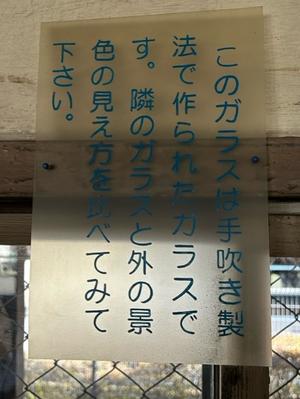 このガラスは手吹き製
法で作られたガラスで
す。隣のガラスと外の景
色の見え方を比べてみて
下さい。